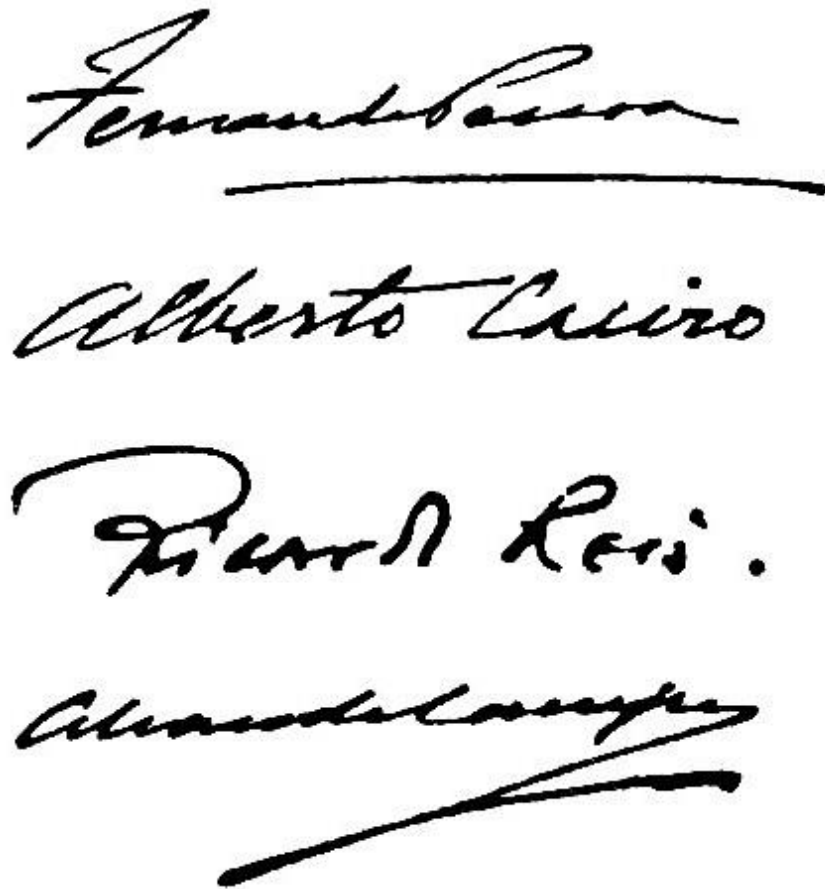 Fernando Pessoa
Alberto Caeiro
Ricardo Reis.
Alvaro de Campos